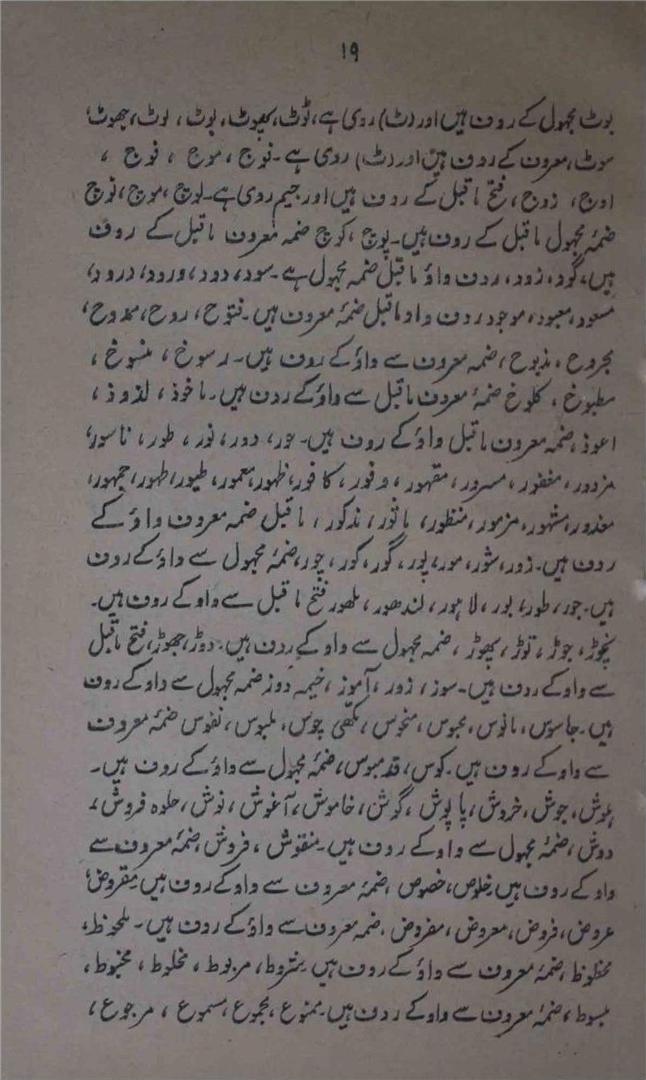 ۱۹
بوٹ مجہول کے ردف ہیں اور (ٹ) روی ہے، ٹوٹ، پھوٹ، بوٹ، لوٹ، جھوٹ،
موٹ، معروف کے ردف ہیں اور (ٹ) روی ہے۔ نوج، موج، فوج،
اوج، زوج، فتح ماقبل کے ردف ہیں اور جیم روی ہے۔ لوچ، موچ، نوچ
ضمۂ مجہول ماقبل کے ردف ہیں۔ پوچ، کوچ ضمہ معروف ماقبل کے ردف
ہیں، گود، زود، ردف واؤ ماقبل ضمہ مجہول ہے۔ سود، دود، ورود، درود،
مسعود، معبود، موجود ردف واو ماقبل ضمۂ معروف ہیں۔ فتوح، روح، ممدوح،
مجروح، مذبوح، ضمہ معروف سے واؤ کے ردف ہیں۔ رسوخ، منسوخ،
مطبوخ، کلوخ ضمۂ معروف ماقبل سے واؤ کے ردف ہیں۔ ماخوذ، لذوذ،
اعوذ، ضمہ معروف ماقبل واؤ کے ردف ہیں۔ حور، دور، نور، طور، ناسور،
مزدور، مغفور، مسرور، مقہور، وفور، کافور، ظہور، معمور، طیور، طہور، جمہور،
معذور، مشہور، مزمور، منظور، مذکور، ماقبل ضمہ معروف واؤ کے
ردف ہیں۔ زور، شور، مور، پور، گور، کور، چور، ضمۂ مجہول سے واؤ کے ردف
ہیں۔ جور، طور، بور، لاہور، لندھور، ملہور فتح ماقبل سے واو کے ردف ہیں۔
نچوڑ، جوڑ، توڑ، پھوڑ، ضمہ مجہول سے واو کے ردف ہیں۔ دوڑ، جھوڑ، فتح ماقبل
سے واو کے ردف ہیں۔ سوز، زور، آموز، خیمہ دوز ضمہ مجہول سے واو کے ردف
ہیں۔ جاسوس، مانوس، محبوس، منحوس، مکھی چوس، ملبوس، نفوس ضمۂ معروف
سے واو کے ردف ہیں۔ کوس، قدمبوس، ضمۂ مجہول سے واؤ کے ردف ہیں۔
ہوش، جوش، خروش، پاپوش، گوش، خاموش، آغوش، نوش، حلوہ فروش،
دوش، ضمۂ مجہول سے واو کے ردف ہیں۔ منقوش، فروش، ضمۂ معروف سے
واو کے ردف ہیں۔ خلوص، خصوص، ضمۂ معروف سے واو کے ردف ہیں۔ مقروض،
عروض، فروض، معروض، مفروض، ضمہ معروف سے واؤ کے ردف ہیں۔ ملحوظ،
محظوظ، ضمۂ معروف سے واؤ کے ردف ہیں۔ مشروط، مربوط، مخلوط، مخبوط،
مبسوط، ضمۂ معروف سے واو کے ردف ہیں۔ ممنوع، مجموع، مسموع، مرجوع،